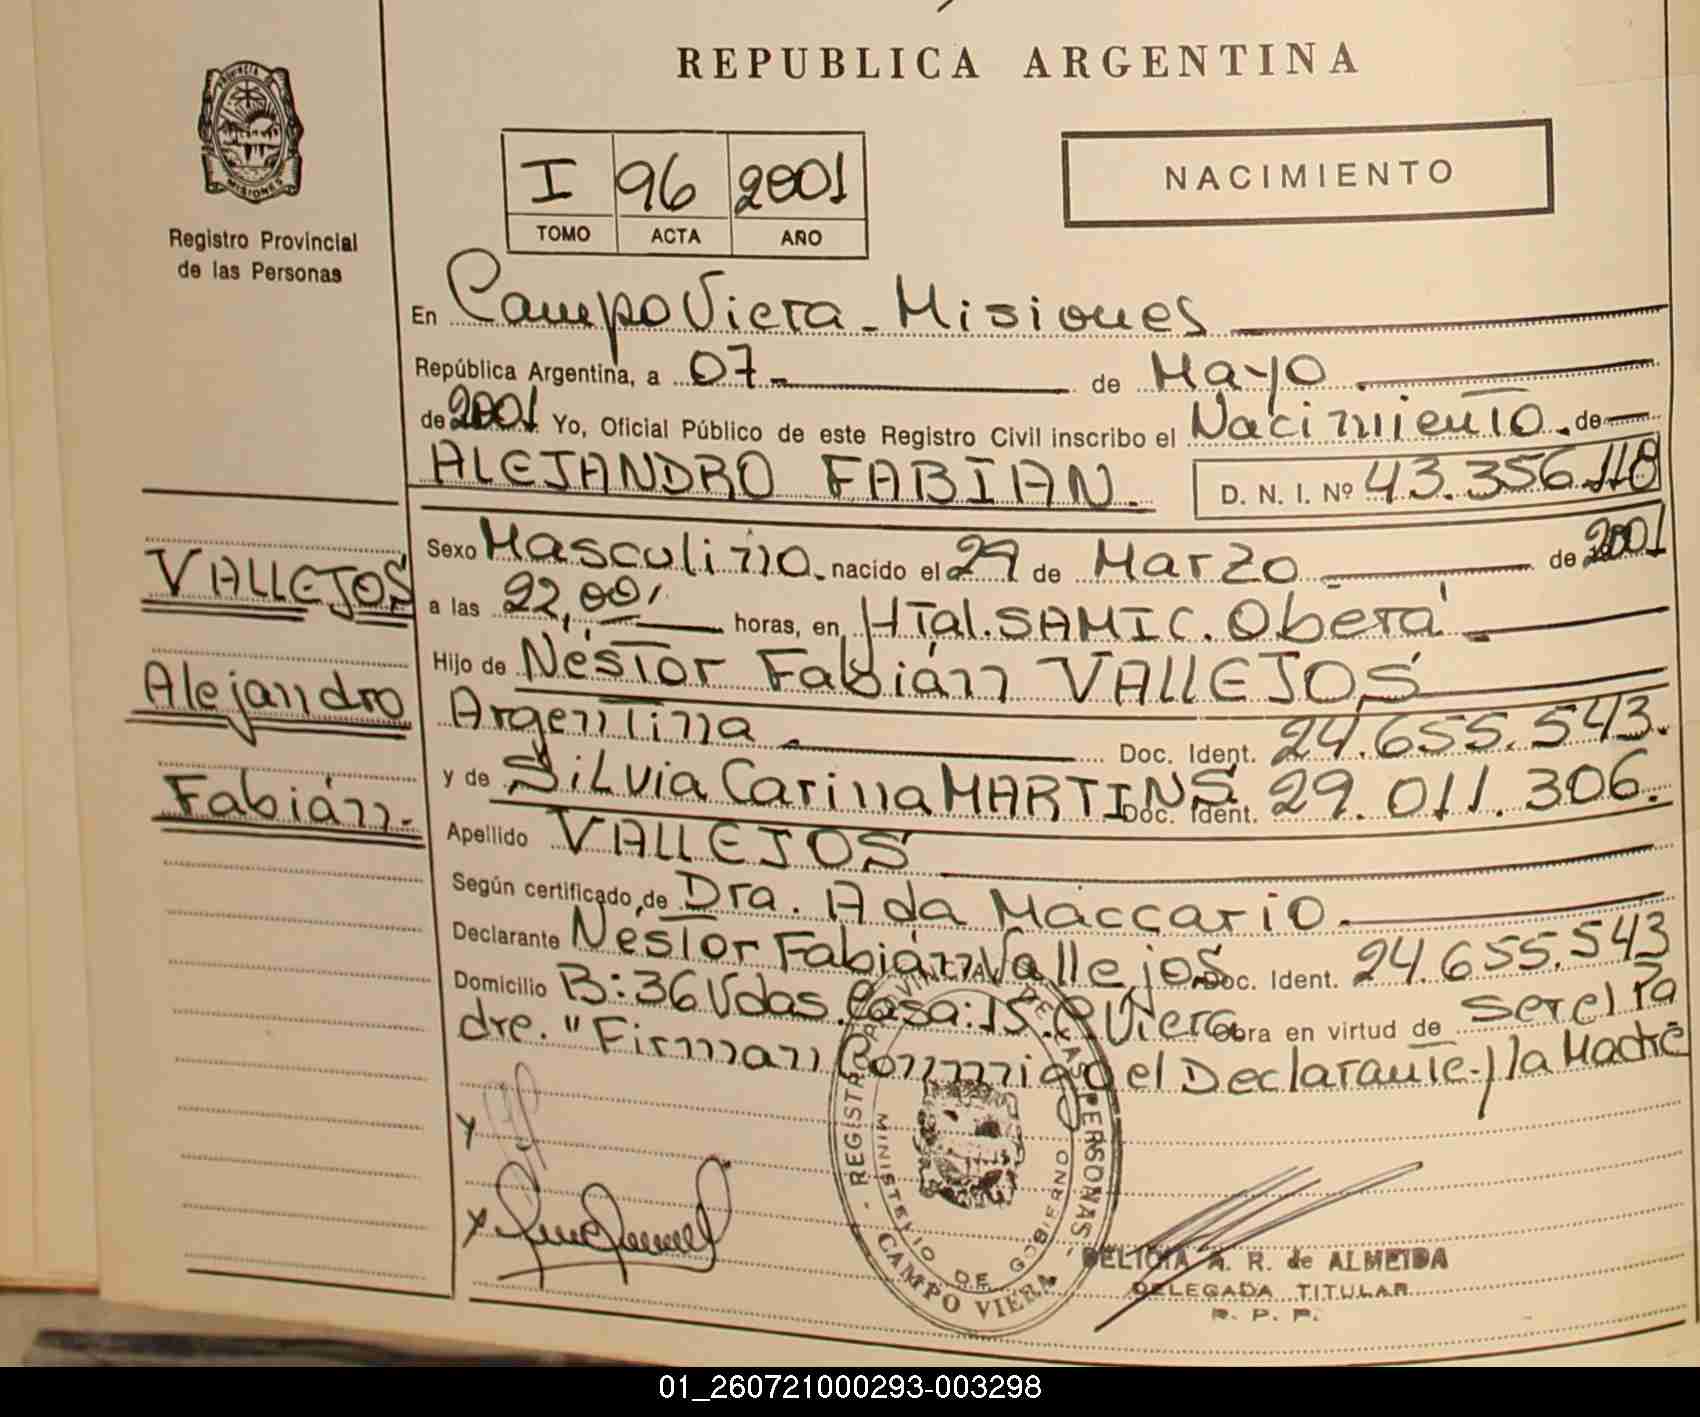 REPUBLICA ARGENTINA
PROVINCIA DE
MISIONES
Registro Provincial
de las Personas
I 96 2001
TOMO ACTA AÑO
NACIMIENTO
En Campo Viera - Misiones
República Argentina, a 07 - de Mayo
de 2001 Yo, Oficial Público de este Registro Civil inscribo el Nacimiento de
ALEJANDRO FABIAN. D. N. I. Nº 43.356.118
VALLEJOS
Alejandro
Fabián.
Sexo Masculino. nacido el 29 de Marzo de 2001
a las 22,00 horas, en Htal. SAMIC. Oberá
Hijo de Néstor Fabián VALLEJOS
Argentina Doc. Ident. 24.655.543.
y de SiLvia Carina MARTINS Doc. Ident. 29.011.306.
Apellido VALLEJOS
Según certificado de Dra. Ada Maccario.
Declarante Nestor Fabián Vallejos Doc. Ident. 24.655.543
Domicilio B: 36 Vdas. Casa: 15. C. Viera Obra en virtud de ser el Pa
dre. "Firman Conmmigo el Declarante y la Madre
REGISTRO PROVINCIAL DE LAS PERSONAS -
MINISTERIO DE GOBIERNO
- CAMPO VIERA
DELICIA A. R. de ALMEIDA
DELEGADA TITULAR
R. P. P.
01_260721000293-003298